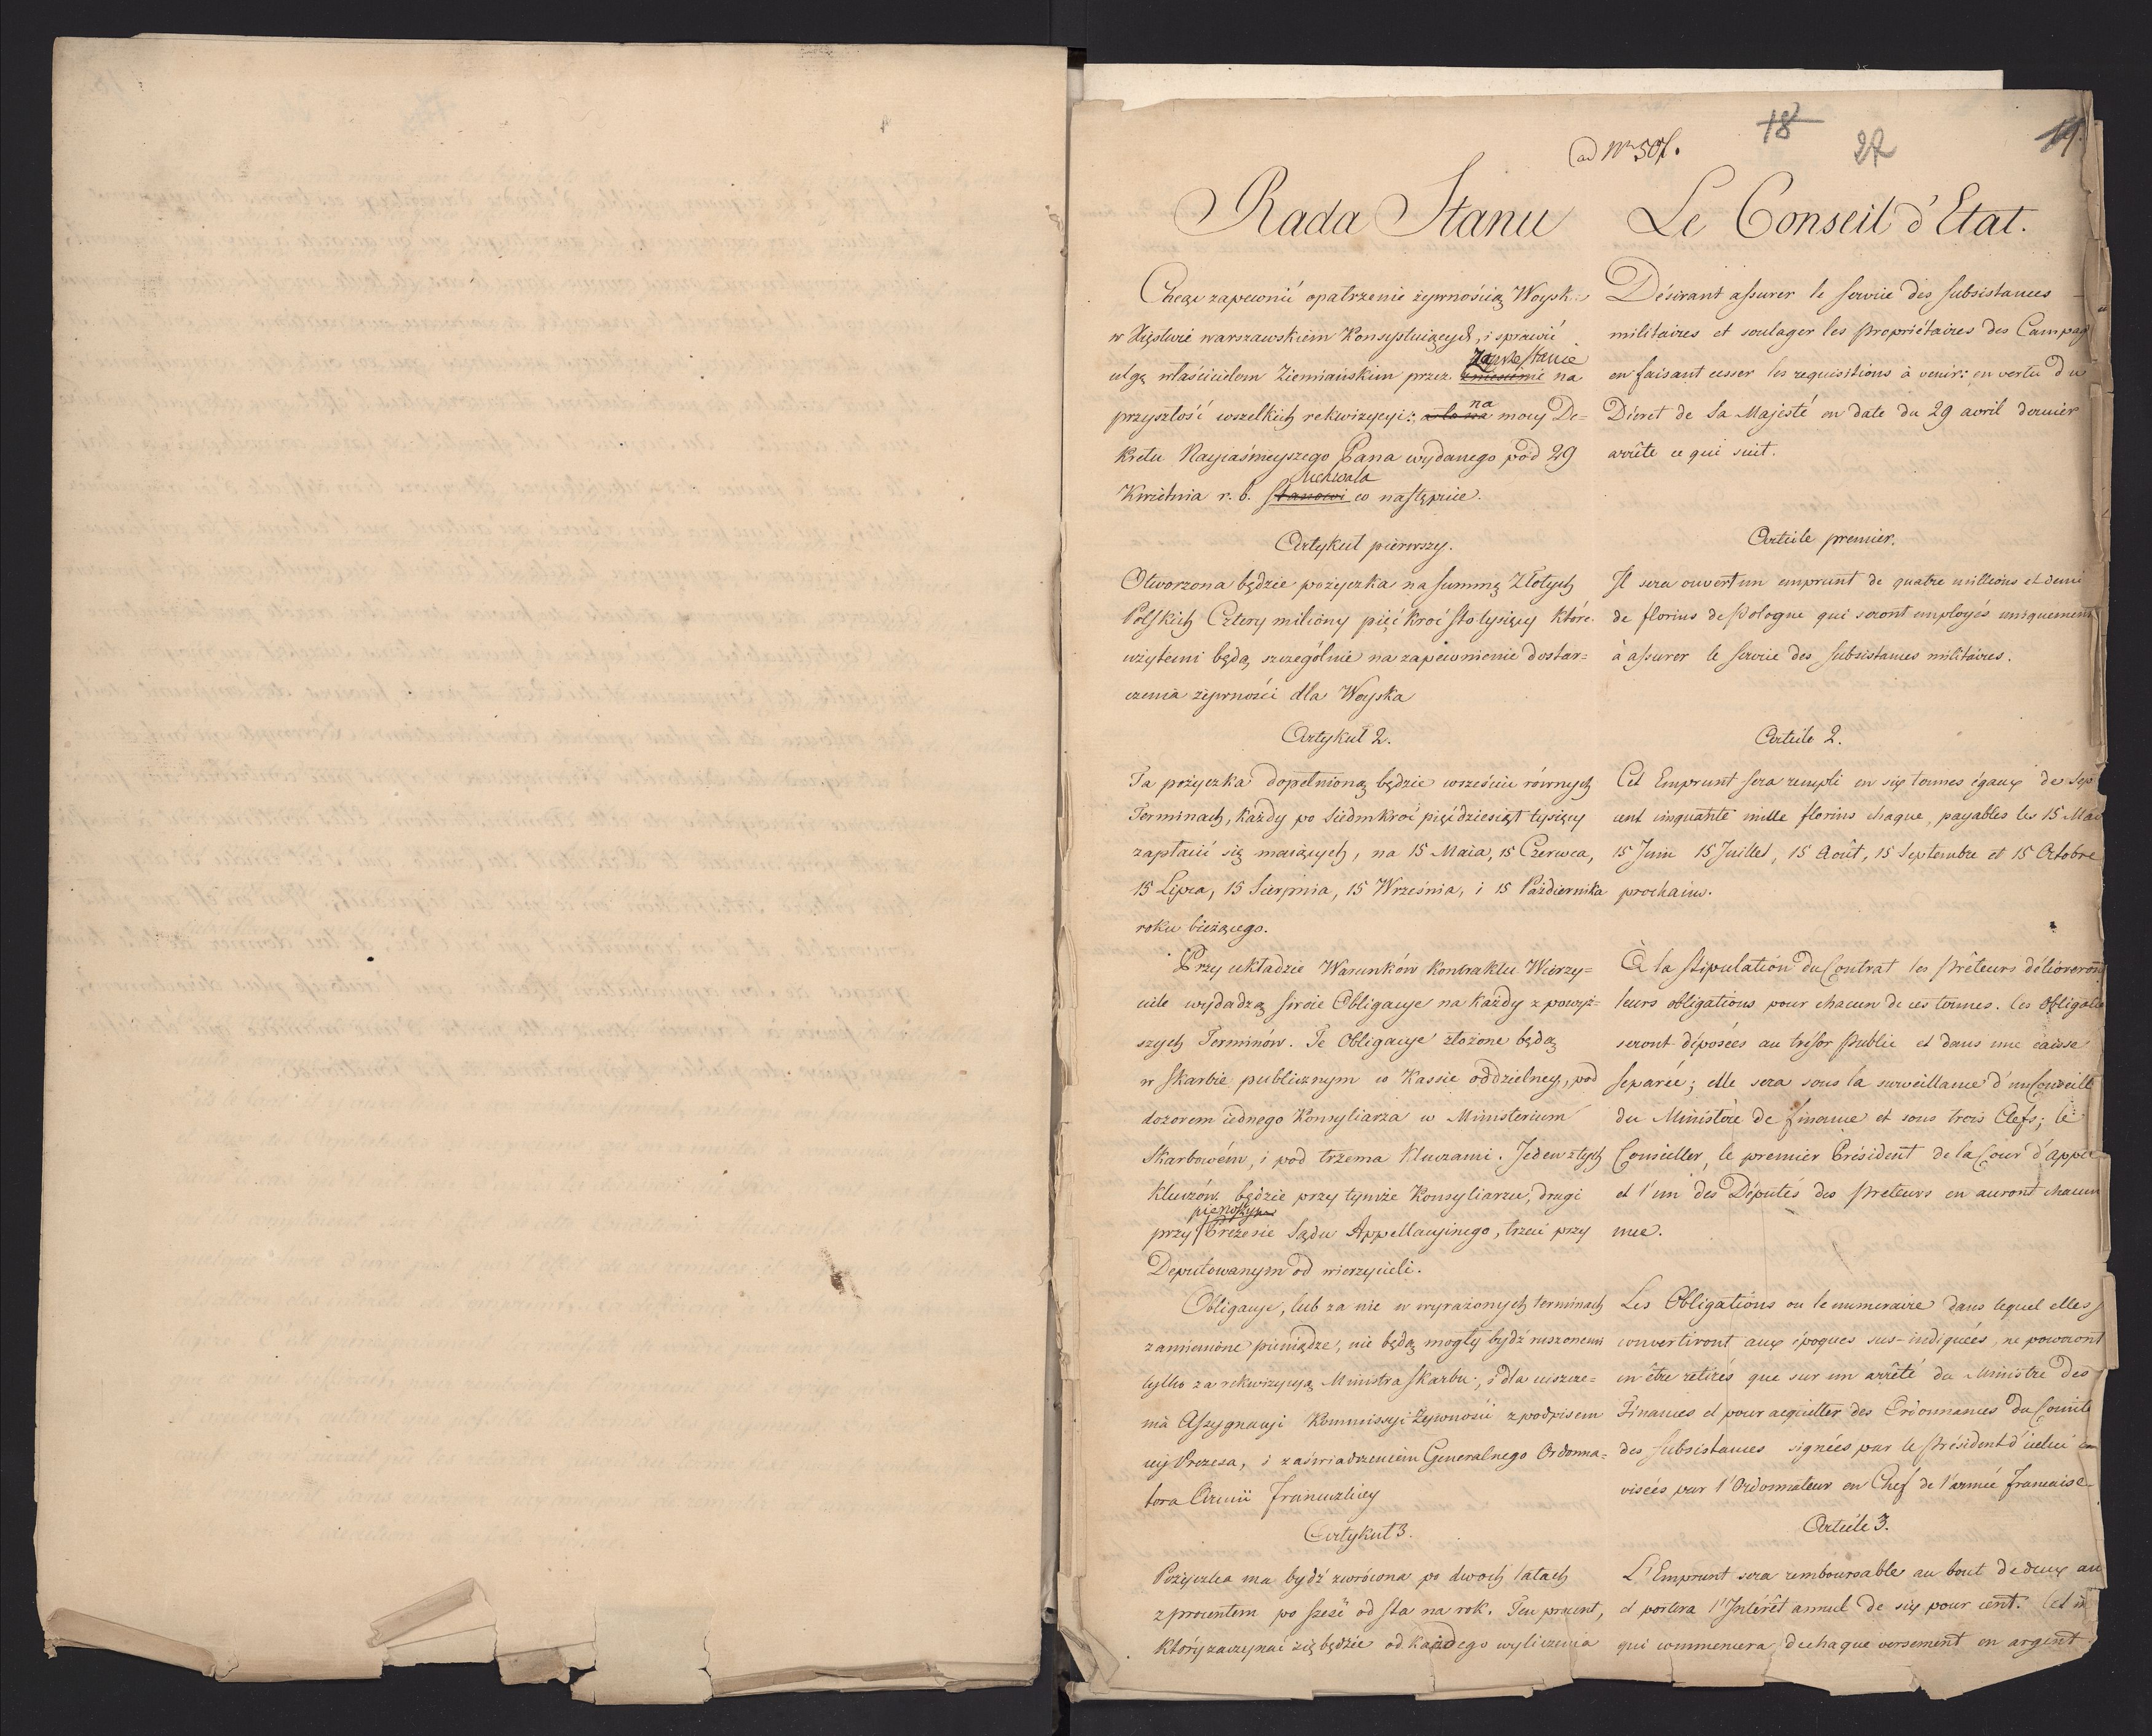 ad Nr 507.
18
27
19.
Rada Stanu
Chcąc zapewnić opatrzenie żywnością Woysk
w Xięstwie warszawskiem Konsystuiących, i sprawić
zaprzestanie
ulgę właścicielom Ziemiańskim przez zniesienie na
na
przyszłość wszelkich rekwizycyi: mocy De-
kretu Nayiaśnieyszego Pana wydanego pod 29
uchwala
Kwietnia r. b. stanowi co następuie.
Artykuł pierwszy.
Otworzona będzie pożyczka na summę Złotych
Polskich Cztery miliony pięć kroć sto tysięcy które
użytemi będą szczególnie na zapewnienie dostar-
czenia żywności dla Woyska
Artykuł 2.
Ta pożyczka dopełnioną będzie w sześciu równych
Terminach, każdy po siedmkroć pięćdziesiąt tysięcy
zapłacić się maiących, na 15 Maia, 15 Czerwca,
15 Lipca, 15 Sierpnia, 15 Września, i 15 Października
roku bieżącego.
Przy układzie Warunków Kontraktu Wierzy-
ciele wydadzą swoie Obligacye na każdy z powyż-
szych Terminów. Te Obligacye złożone będą
w Skarbie publicznym w Kassie oddzielney, pod
dozorem iednego Konsyliarza w Ministerium
Skarbowém, i pod trzema Kluczami. Jeden z tych
Kluczów będzie przy tymże Konsyliarzu, drugi
pierwszym
przy Prezesie Sądu Appellacyinego, trzeci przy
Deputowanym od wierzycieli.
Obligacye, lub za nie w wyrażonych terminach
zamienione pieniądze, nie będą mogły bydź ruszonemi
tylko za rekwizycyą Ministra Skarbu, i dla uiszcze-
nia Assygnacyi Kommissyi Żywności z podpisem
iey Prezesa, i zaświadczeniem Generalnego Ordonna-
tora Armii Francuzkiey
Artykuł 3.
Pożyczka ma bydź zwrócona po dwóch latach
z procentem po sześć od sta na rok. Ten procent,
który zaczynać się będzie od każdego wyliczenia
Le Conseil d'Etat.
Désirant assurer le service des subsistances
militaires et soulager les propriétaires des Campag
en faisant cesser les requisitions à venir: en vertu du
Décret de Sa Majesté en date du 29 avril dernier
arrête ce qui suit.
Article premier.
Il sera ouvert un emprunt de quatre millions et demi
de florins de Pologne qui seront employés uniquement
à assurer le service des subsistances militaires.
Article 2.
Cet Emprunt sera rempli en six termes égaux de sep
cent cinquante mille florins chaque, payables les 15 Mai
15 Juin 15 Juillet, 15 Août, 15 Septembre et 15 Octobre
prochains.
À la stipulation du Contrat les Prêteurs délivreront
leurs obligations pour chacun de ces termes. Ces Obligatio
seront déposées au trésor Public et dans une caisse
separée; elle sera sous la surveillance d'un Conseill
du Ministère de finance et sous trois Clefs; le
Conseiller, le premier Président de la Cour d'appel
et l'un des Députés des preteurs en auront chacun
une.
Les Obligations ou le numeraire dans lequel elles
convertiront aux époques sus-indiquées, ne pourront
en être retirés que sur un arrêté du Ministre des
Finances et pour acquitter des Ordonnances du Comité
des subsistances signées par le Président d'icelui
visées par l'Ordonnateur en Chef de l'armée francaise
Article 3.
L'Emprunt sera remboursable au bout de deux an
et portera l'Intérêt annuel de six pour cent. Cet in
qui commencera de chaque versement en argent